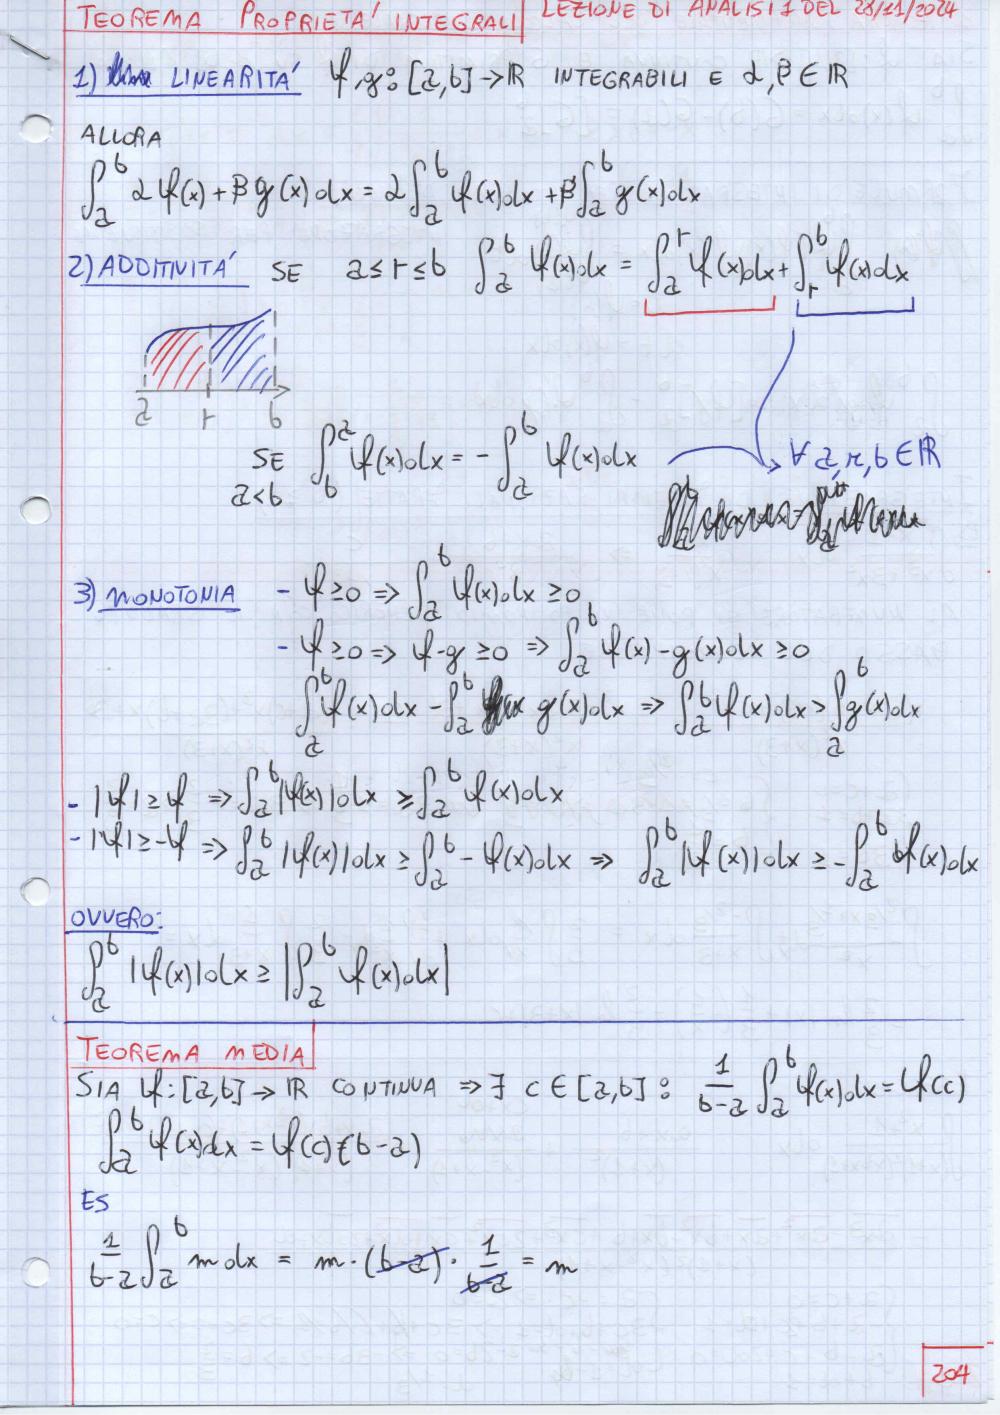 TEOREMA PROPRIETA' INTEGRALI LEZIONE DI ANALISI 1 DEL 28/11/2024
1) LINEARITA' φ,g: [a,b] → ℝ INTEGRABILI E α,β ∈ ℝ
ALLORA
∫_a^b αφ(x) + βg(x)dx = α∫_a^b φ(x)dx + β∫_a^b g(x)dx
2) ADDITIVITA' SE a ≤ r ≤ b ∫_a^b φ(x)dx = ∫_a^r φ(x)dx + ∫_r^b φ(x)dx
a r b
SE ∫_b^a φ(x)dx = -∫_a^b φ(x)dx → ∀ a,r,b ∈ ℝ
a<b
3) MONOTONIA - φ ≥ 0 ⇒ ∫_a^b φ(x)dx ≥ 0
- φ ≥ 0 ⇒ φ-g ≥ 0 ⇒ ∫_a^b φ(x) - g(x)dx ≥ 0
∫_a^b φ(x)dx - ∫_a^b g(x)dx ⇒ ∫_a^b φ(x)dx > ∫_a^b g(x)dx
- |φ| ≥ φ ⇒ ∫_a^b |φ(x)|dx ≥ ∫_a^b φ(x)dx
- |φ| ≥ -φ ⇒ ∫_a^b |φ(x)|dx ≥ ∫_a^b - φ(x)dx ⇒ ∫_a^b |φ(x)|dx ≥ -∫_a^b φ(x)dx
OVVERO:
∫_a^b |φ(x)|dx ≥ |∫_a^b φ(x)dx|
TEOREMA MEDIA
SIA φ: [a,b] → ℝ CONTINUA ⇒ ∃ c ∈ [a,b] : 1/(b-a) ∫_a^b φ(x)dx = φ(c)
∫_a^b φ(x)dx = φ(c)(b-a)
ES
1/(b-a) ∫_a^b m dx = m · (b-a) · 1/(b-a) = m
204